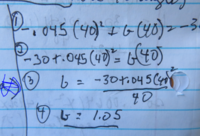 ① -.045(40)² + b(40) = -3
② -30+.045(40)² = b(40)
③ b = -30+.045(40)² / 40
④ b = 1.05